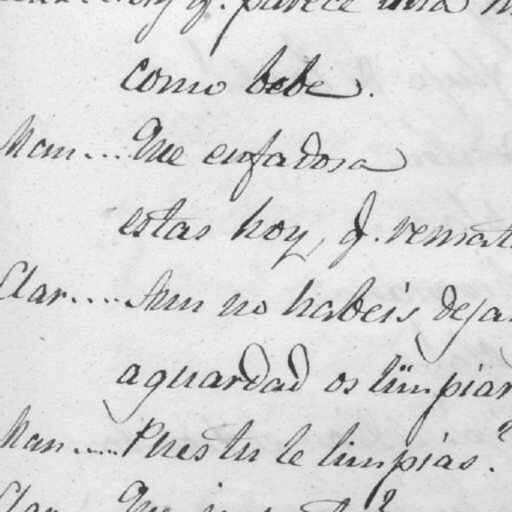 q. parece una
como bebe.
Man.... Que enfadosa
estas hoy, q. remat
Clar..... Aun no habeis dejar
aguardad os limpiar
Man..... Pues tu le limpias?
Clar Que